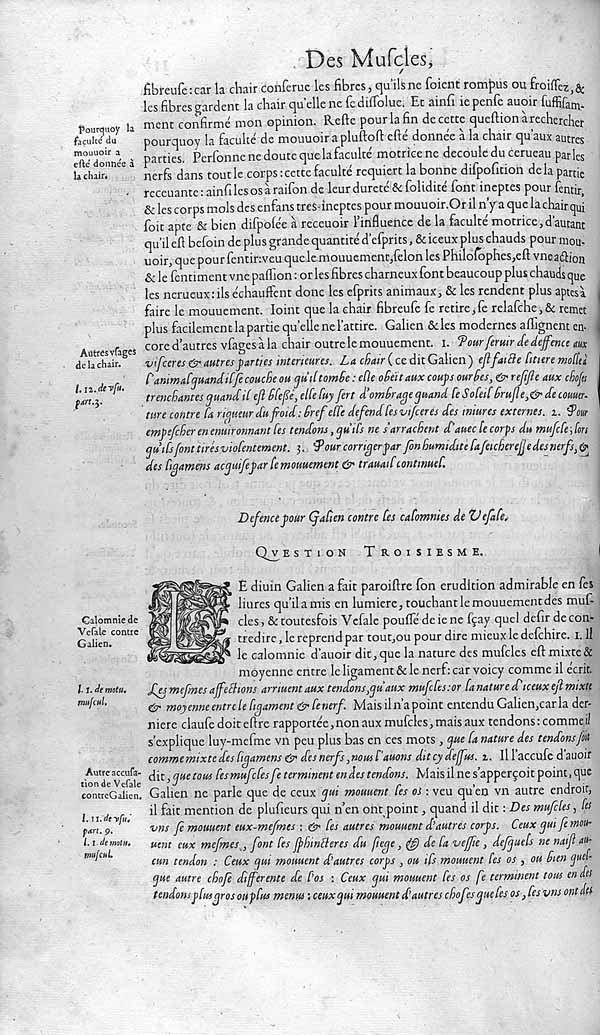 Des Muſcles,
fibreuſe : car la chair conſerue les fibres, qu'ils ne ſoient rompus ou froiſſez, &
les fibres gardent la chair qu'elle ne ſe diſſolue. Et ainſi ie penſe auoir ſuffiſam-
ment confirmé mon opinion. Reſte pour la fin de cette queſtion à rechercher
Pourquoy la
faculté du
mouuoir a
eſté donnée à
la chair.
pourquoy la faculté de mouuoir a pluſtoſt eſté donnée à la chair qu'aux autres
parties. Perſonne ne doute que la faculté motrice ne decoule du cerueau par les
nerfs dans tout le corps : cette faculté requiert la bonne diſpoſition de la partie
receuante : ainſi les os à raiſon de leur dureté & ſolidité ſont ineptes pour ſentir,
& les corps mols des enfans tres-ineptes pour mouuoir. Or il n'y a que la chair qui
ſoit apte & bien diſpoſée à receuoir l'influence de la faculté motrice, d'autant
qu'il eſt beſoin de plus grande quantité d'eſprits, & iceux plus chauds pour mou-
uoir, que pour ſentir : veu que le mouuement, ſelon les Philoſophes, eſt vne action
& le ſentiment vne paſſion : or les fibres charneux ſont beaucoup plus chauds que
les nerueux : ils échauffent donc les eſprits animaux, & les rendent plus aptes à
faire le mouuement. Ioint que la chair fibreuſe ſe retire, ſe relaſche, & remet
plus facilement la partie qu'elle ne l'attire. Galien & les modernes aſſignent en-
Autres vſages
de la chair.
l. 12. de vſu.
part. 3.
core d'autres vſages à la chair outre le mouuement. 1. Pour ſeruir de deffence aux
viſceres & autres parties interieures. La chair (ce dit Galien) eſt faicte litiere molle à
l'animal quand il ſe couche ou qu'il tombe : elle obeït aux coups ourbes, & reſiſte aux choſes
trenchantes quand il eſt bleſſé, elle luy ſert d'ombrage quand le Soleil bruſle, & de couuer-
ture contre la rigueur du froid : bref elle defend les viſceres des iniures externes. 2. Pour
empeſcher en enuironnant les tendons, qu'ils ne s'arrachent d'auec le corps du muſcle, lors
qu'ils ſont tirés violentement. 3. Pour corriger par ſon humidité la ſeichereſſe des nerfs, &
des ligamens acquiſe par le mouuement & trauail continuel.
Defence pour Galien contre les calomnies de Veſale.
QVESTION TROISIESME.
LE diuin Galien a fait paroiſtre ſon erudition admirable en ſes
liures qu'il a mis en lumiere, touchant le mouuement des muſ-
Calomnie de
Veſale contre
Galien.
cles, & toutesfois Veſale pouſſé de ie ne ſçay quel deſir de con-
tredire, le reprend par tout, ou pour dire mieux le deſchire. 1. Il
le calomnie d'auoir dit, que la nature des muſcles eſt mixte &
moyenne entre le ligament & le nerf : car voicy comme il écrit.
l. 1. de motu.
muſcul.
Les meſmes affections arriuent aux tendons, qu'aux muſcles : or la nature d'iceux eſt mixte
& moyenne entre le ligament & le nerf. Mais il n'a point entendu Galien, car la der-
niere clauſe doit eſtre rapportée, non aux muſcles, mais aux tendons : comme il
s'explique luy-meſme vn peu plus bas en ces mots, que la nature des tendons ſoit
comme mixte des ligamens & des nerfs, nous l'auons dit cy deſſus. 2. Il l'accuſe d'auoir
Autre accuſa-
tion de Veſale
contre Galien.
l. 11. de vſu.
part. 9.
l. 1. de motu.
muſcul.
dit, que tous les muſcles ſe terminent en des tendons. Mais il ne s'apperçoit point, que
Galien ne parle que de ceux qui mouuent les os : veu qu'en vn autre endroit,
il fait mention de pluſieurs qui n'en ont point, quand il dit : Des muſcles, les
vns ſe mouuent eux-meſmes : & les autres mouuent d'autres corps. Ceux qui ſe mou-
uent eux meſmes, ſont les ſphincteres du ſiege, & de la veſſie, deſquels ne naiſt au-
cun tendon : Ceux qui mouuent d'autres corps, ou ils mouuent les os, ou bien quel-
que autre choſe differente de l'os : Ceux qui mouuent les os ſe terminent tous en des
tendons plus gros ou plus menus : ceux qui mouuent d'autres choſes que les os, les vns ont des